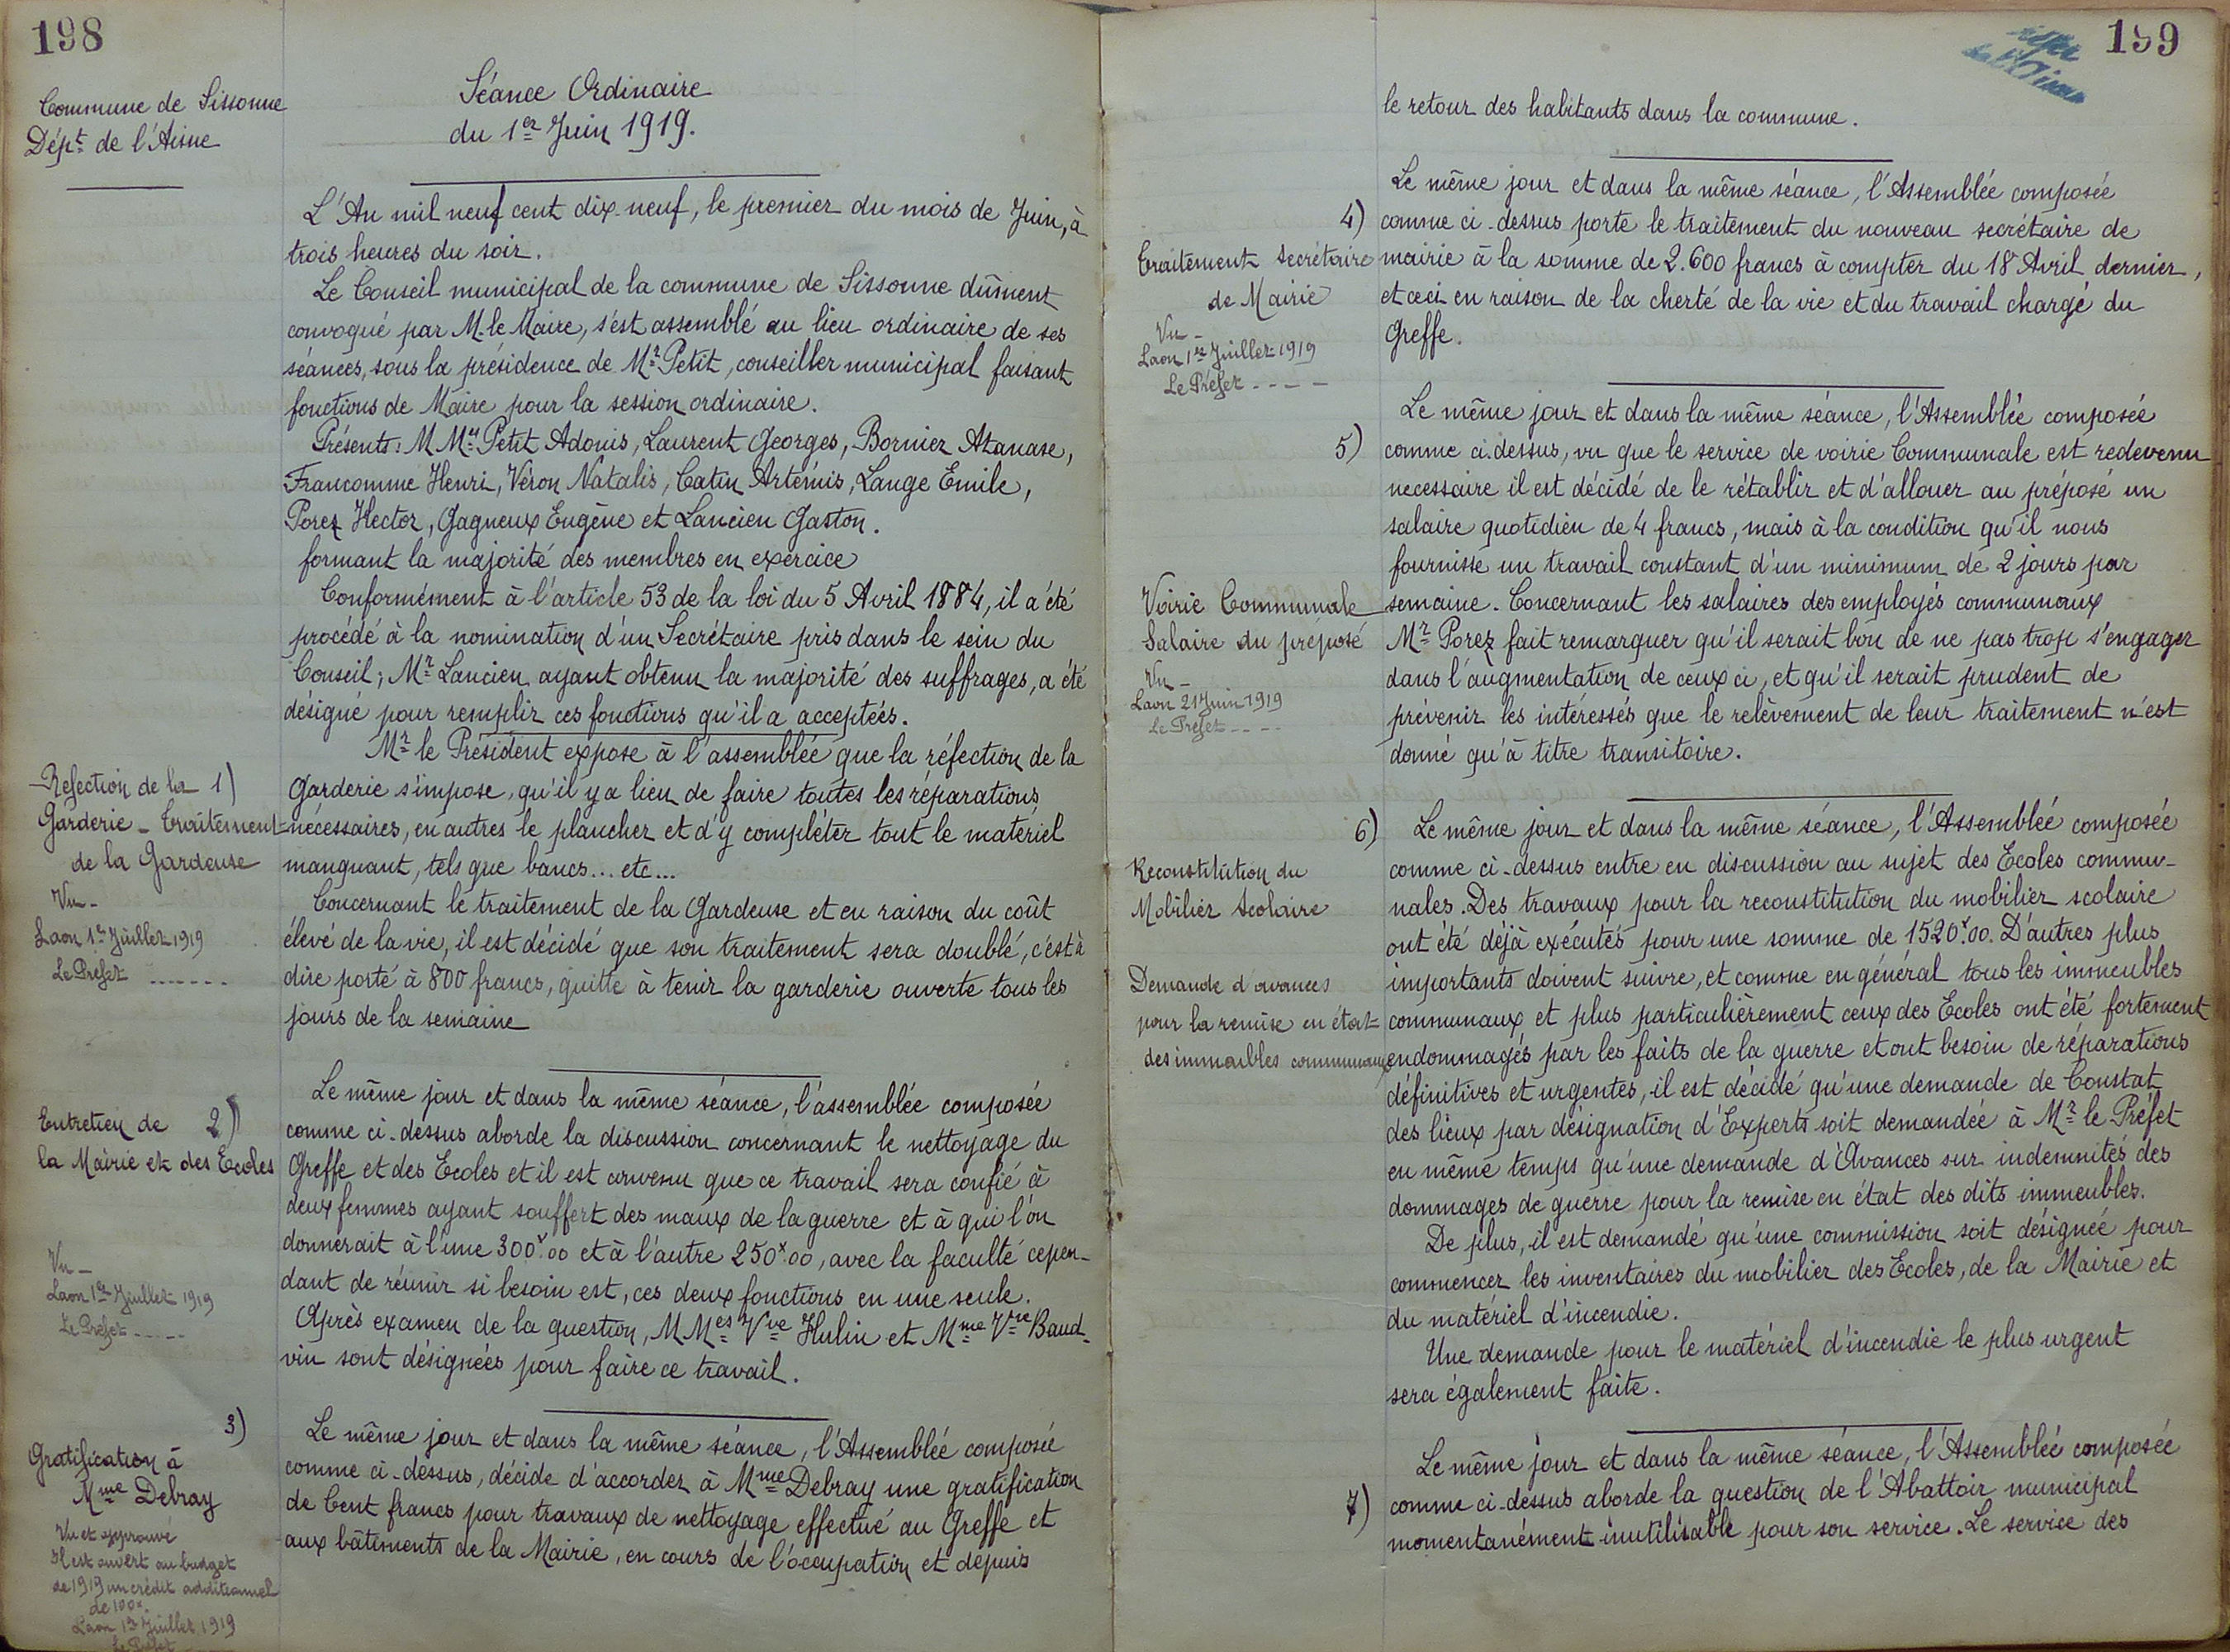 198
Commune de Sissonne
Dépt de l'Aisne
Séance Ordinaire
du 1er Juin 1919.
L'An mil neuf cent dix-neuf, le premier du mois de Juin, à
trois heures du soir.
Le Conseil municipal de la commune de Sissonne dûment
convoqué par M. le Maire, s'est assemblé au lieu ordinaire de ses
séances, sous la présidence de Mr Petit, conseiller municipal faisant
fonctions de Maire pour la session ordinaire.
Présents: M Mrs Petit Adonis, Laurent Georges, Bornier Atanase,
Francomme Henri, Véron Natalis, Catin Artémis, Lange Emile,
Porez Hector, Gagneux Eugène et Lancien Gaston.
formant la majorité des membres en exercice
Conformément à l'article 53 de la loi du 5 Avril 1884, il a été
procédé à la nomination d'un Secrétaire pris dans le sein du
Conseil; Mr Lancien ayant obtenu la majorité des suffrages, a été
désigné pour remplir ces fonctions qu'il a acceptées.
Refection de la 1)
Garderie - Traitement
de la Gardeuse
Vu -
Laon 1er Juillet 1919
Le Préfet .......
Mr le Président expose à l'assemblée que la réfection de la
Garderie s'impose, qu'il y a lieu de faire toutes les réparations
nécessaires, en autres le plancher et d'y compléter tout le matériel
manquant, tels que bancs... etc...
Concernant le traitement de la Gardeuse et en raison du coût
élevé de la vie, il est décidé que son traitement sera doublé, c'est à
dire porté à 800 francs, quitte à tenir la garderie ouverte tous les
jours de la semaine
Entretien de 2)
la Mairie et des Ecoles
Vu -
Laon 1er Juillet 1919
Le Préfet -----
Le même jour et dans la même séance, l'assemblée composée
comme ci-dessus aborde la discussion concernant le nettoyage du
Greffe et des Ecoles et il est convenu que ce travail sera confié à
deux femmes ayant souffert des maux de la guerre et à qui l'on
donnerait à l'une 300f.00 et à l'autre 250f.00, avec la faculté cepen-
dant de réunir si besoin est, ces deux fonctions en une seule.
Après examen de la question, M Mes Vve Hulin et Mme Vve Baud-
vin sont désignées pour faire ce travail.
3)
Gratification à
Mme Debray
Vu et approuvé
Il est ouvert au budget
de 1919 un crédit additionnel
de 100f.
Laon 1er Juillet 1919
Le Préfet
Le même jour et dans la même séance, l'Assemblée composée
comme ci-dessus, décide d'accorder à Mme Debray une gratification
de Cent francs pour travaux de nettoyage effectué au Greffe et
aux bâtiments de la Mairie, en cours de l'occupation et depuis
199
le retour des habitants dans la commune.
4)
Traitement Secrétaire
de Mairie
Vu -
Laon 1er Juillet 1919
Le Préfet ----
Le même jour et dans la même séance, l'Assemblée composée
comme ci-dessus porte le traitement du nouveau secrétaire de
mairie à la somme de 2.600 francs à compter du 18 Avril dernier,
et ceci en raison de la cherté de la vie et du travail chargé du
Greffe.
5)
Voirie Communale
Salaire du préposé
Vu -
Laon 21 Juin 1919
Le Préfet ----
Le même jour et dans la même séance, l'Assemblée composée
comme ci-dessus, vu que le service de voirie Communale est redevenu
necessaire il est décidé de le rétablir et d'allouer au préposé un
salaire quotidien de 4 francs, mais à la condition qu'il nous
fournisse un travail constant d'un minimum de 2 jours par
semaine. Concernant les salaires des employés communaux
Mr Porez fait remarquer qu'il serait bon de ne pas trop s'engager
dans l'augmentation de ceux ci, et qu'il serait prudent de
prévenir les intéressés que le relèvement de leur traitement n'est
donné qu'à titre transitoire.
6)
Reconstitution du
Mobilier Scolaire
Demande d'avances
pour la remise en état
des immeubles communaux
Le même jour et dans la même séance, l'Assemblée composée
comme ci-dessus entre en discussion au sujet des Ecoles commu-
nales. Des travaux pour la reconstitution du mobilier scolaire
ont été déjà exécutés pour une somme de 1520f.00. D'autres plus
importants doivent suivre, et comme en général tous les immeubles
communaux et plus particulièrement ceux des Ecoles ont été fortement
endommagés par les faits de la guerre et ont besoin de réparations
définitives et urgentes, il est décidé qu'une demande de Constat
des lieux par désignation d'Experts soit demandée à Mr le Préfet
en même temps qu'une demande d'Avances sur indemnités des
dommages de guerre pour la remise en état des dits immeubles.
De plus, il est demandé qu'une commission soit désignée pour
commencer les inventaires du mobilier des Ecoles, de la Mairie et
du matériel d'incendie.
Une demande pour le matériel d'incendie le plus urgent
sera également faite.
7)
Le même jour et dans la même séance, l'Assemblée composée
comme ci-dessus aborde la question de l'Abattoir municipal
momentanément inutilisable pour son service. Le service des